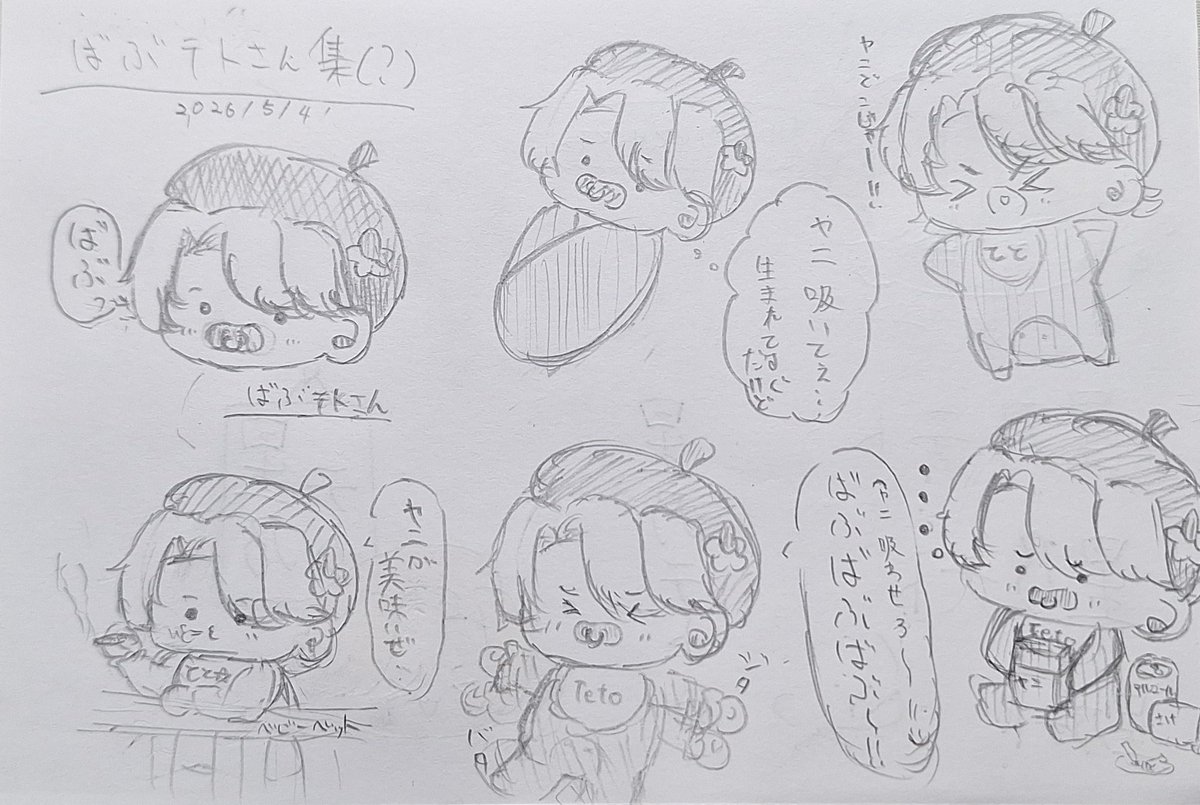 ばぶテトさん集(?)
2026/5/4
ばぶ
ばぶテトさん
ヤニ吸いてぇ…
生まれてすぐ
だけど
ヤニでこぶぁーー!!
てと
ヤニが
美味いぜ
てと
ベビーベット
Teto
バタ
ジタ
(ヤニ吸わせろ〜
ばぶばぶばぶ〜!!
Teto
ヤニ
アルコール
さけ